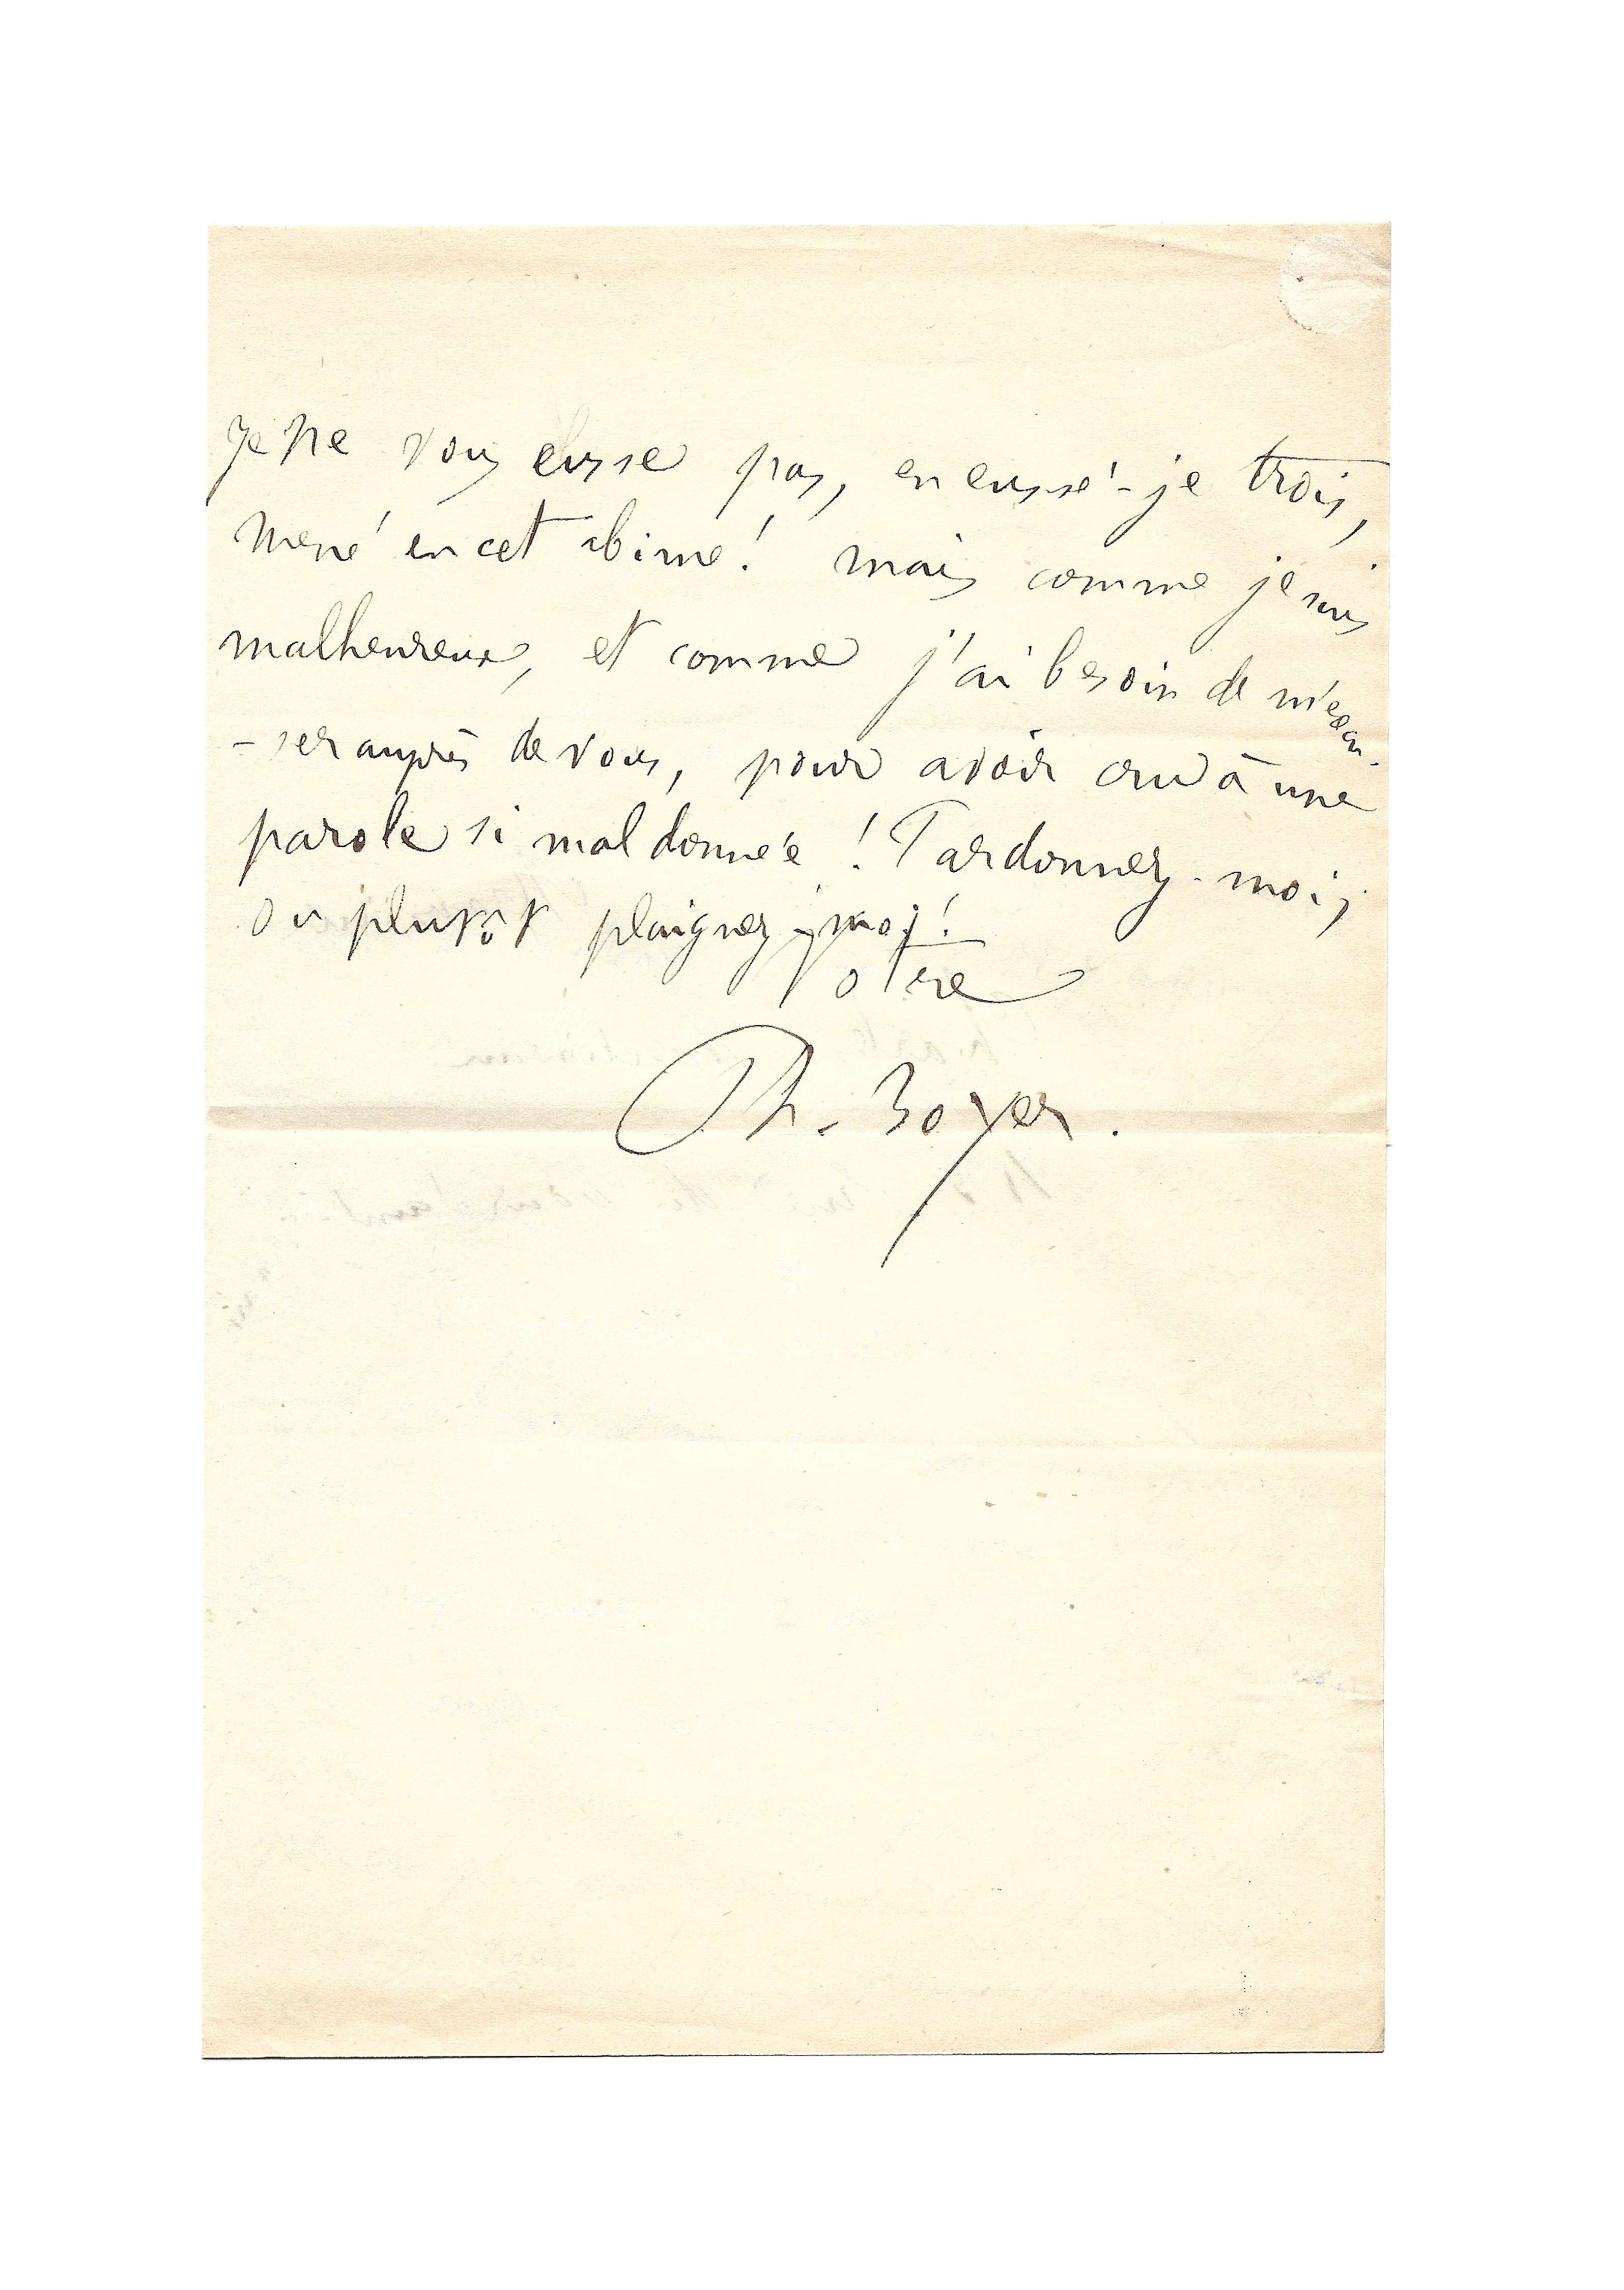 Je ne vous eusse pas, en eussé-je trois,
mené en cet abime! mais comme je suis
malheureux, et comme j'ai besoin de m'excu-
-ser auprès de vous, pour avoir cru à une
parole si mal donnée! Pardonnez-moi,
ou plutôt plaignez-moi!
Votre
Ph. Boyer.